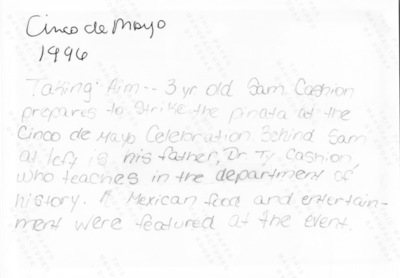 Cinco de Mayo
1996
Taking Aim -- 3 yr old Sam Cashion
prepares to strike the pinata at the
Cinco de Mayo Celebration Behind Sam
at left is his father, Dr Ty Cashion,
who teaches in the department of
history. Mexican food and entertain-
ment were featured at the event.